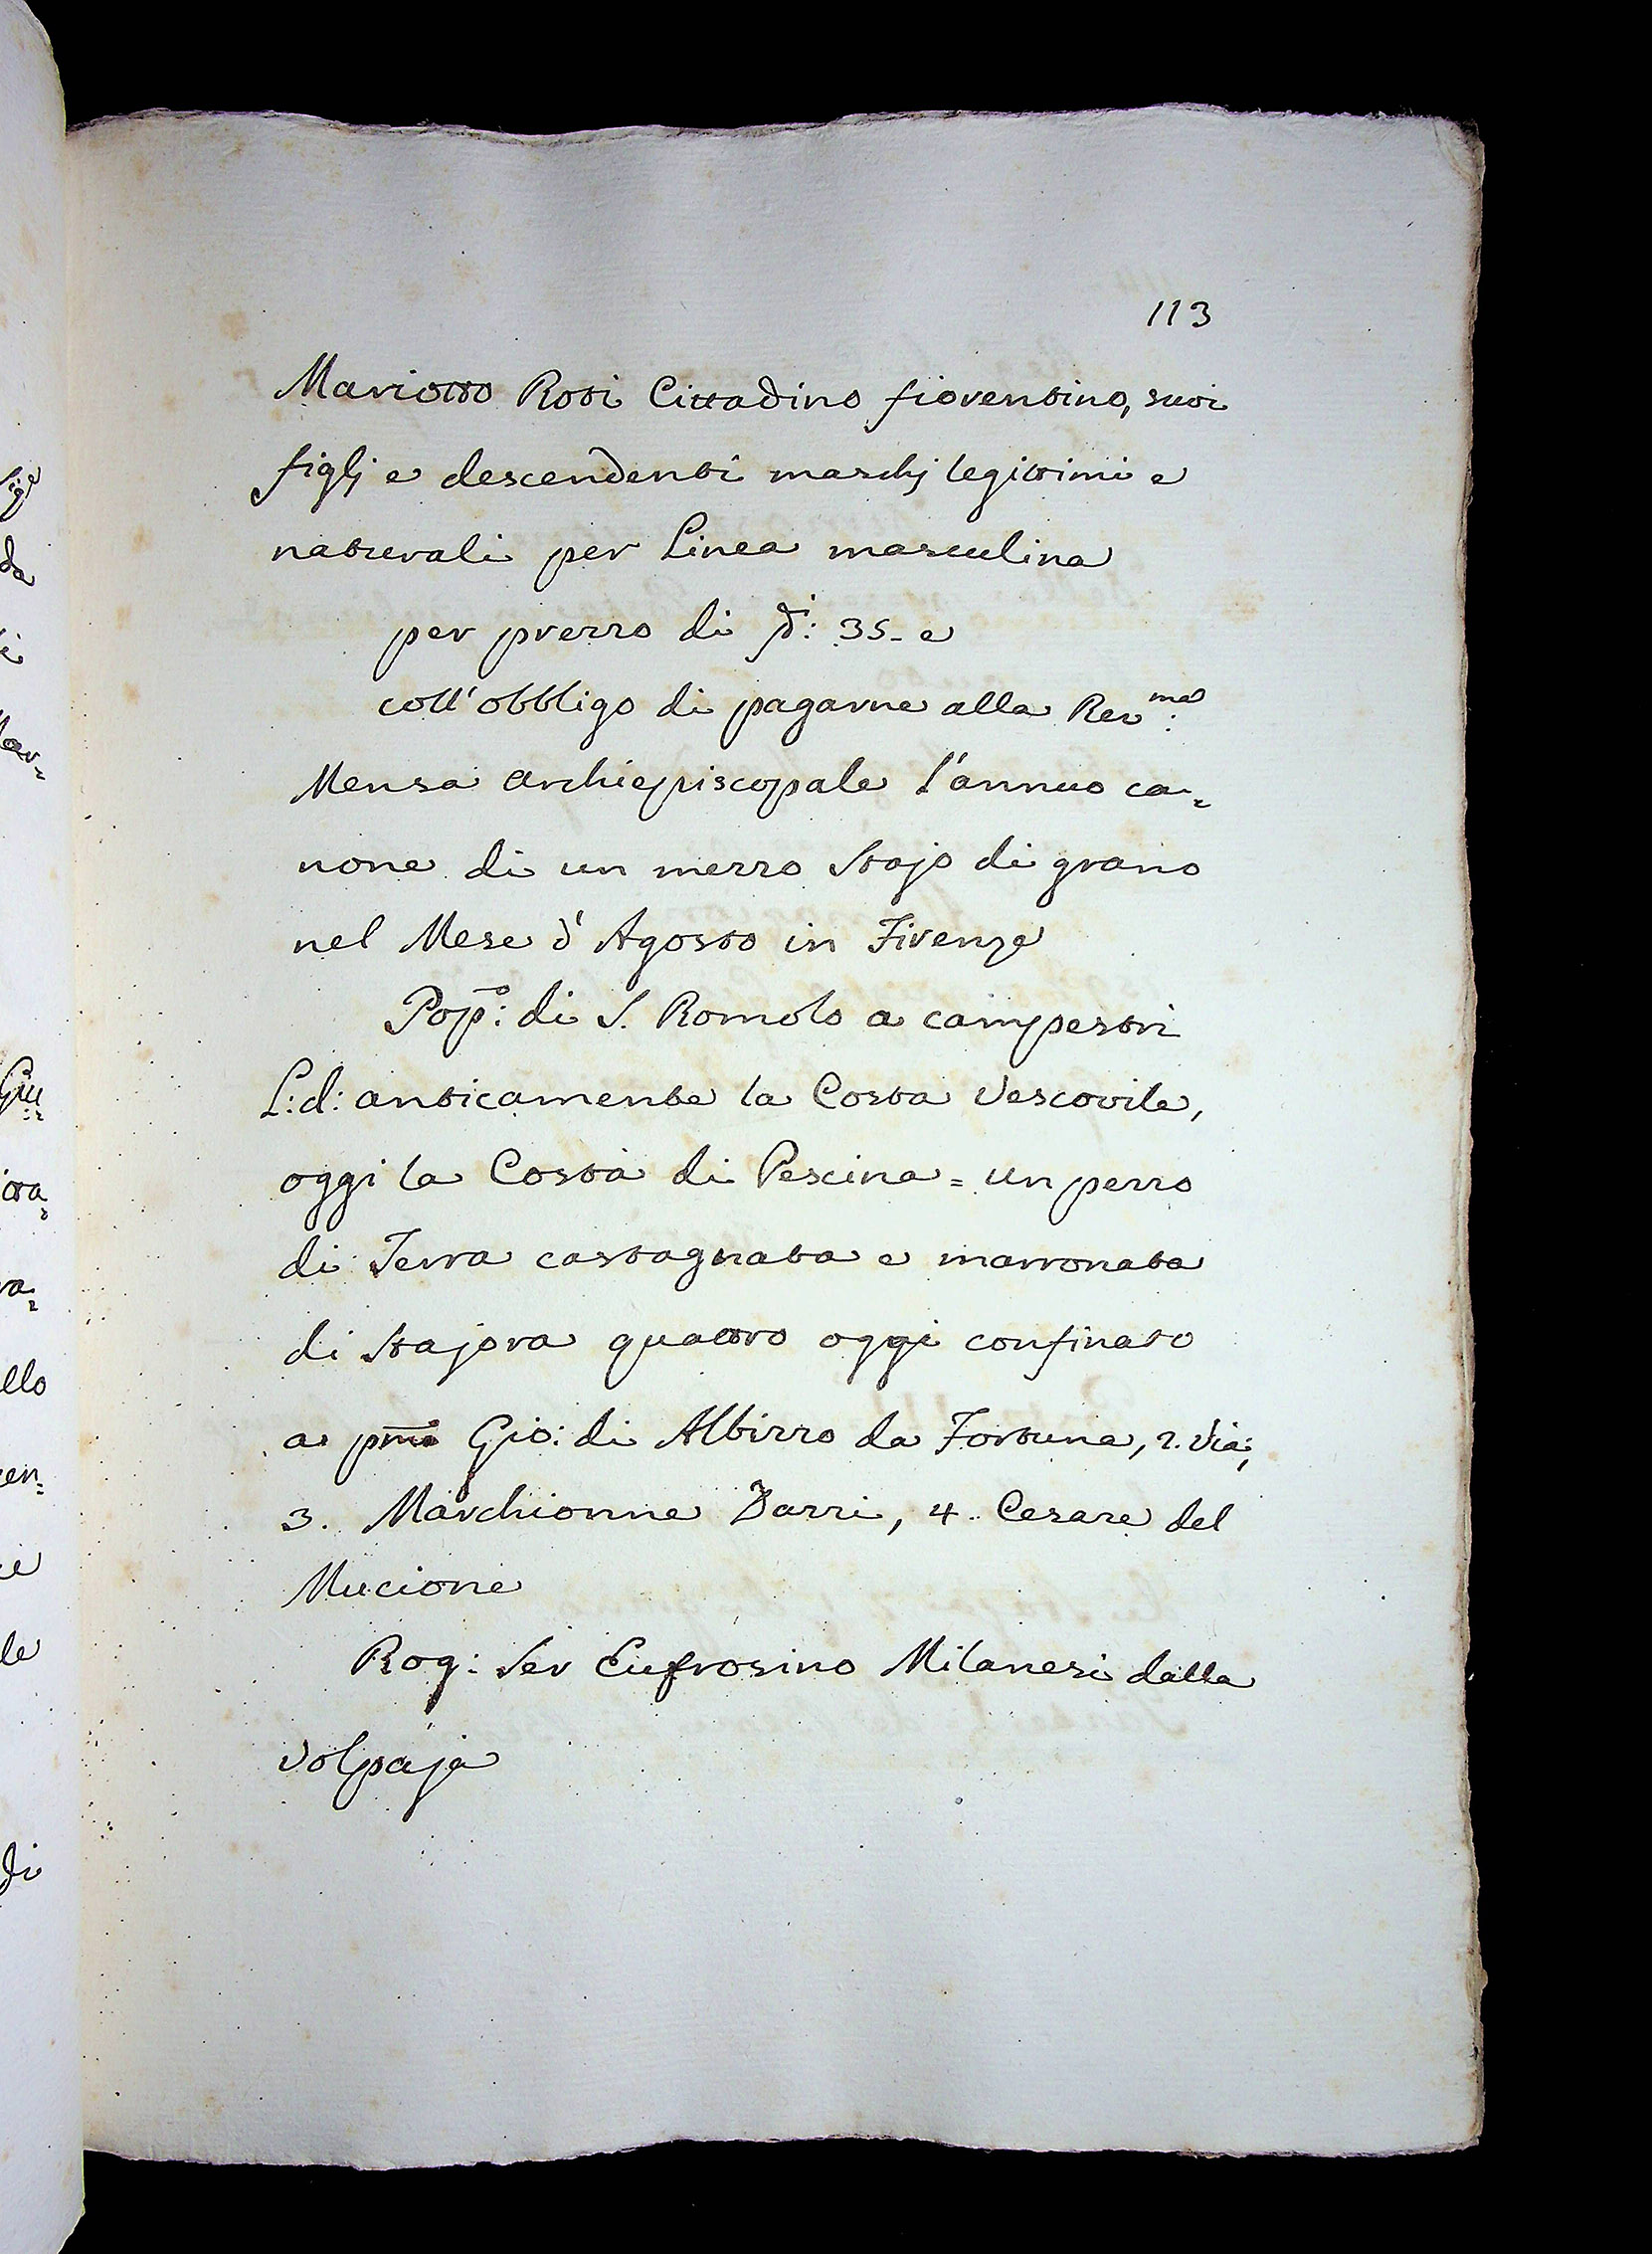 113
Mariotto Roti Cittadino fiorentino, suoi
figlj e descendenti maschj legittimi e
naturali per Linea masculina
per prezzo di 35. e
coll'obbligo di pagarne alla Rev:ma
Mensa archiepiscopale l'annuo ca=
none di un mezzo Stajo di grano
nel Mese d'Agosto in Firenze
Pop:o di S. Romolo a campestri
L:d: anticamente la Costa Vescovile,
oggi la Costa di Pescina = un pezzo
di Terra castagnata e marronata
di Stajora quattro oggi confinato
a pmo Gio: di Albizzo da Fortuna, 2. Via;
3. Marchionne Dazzi, 4. Cesare del
Mucione
Rog: Ser Eufrosino Milanesi dalla
Volpaja